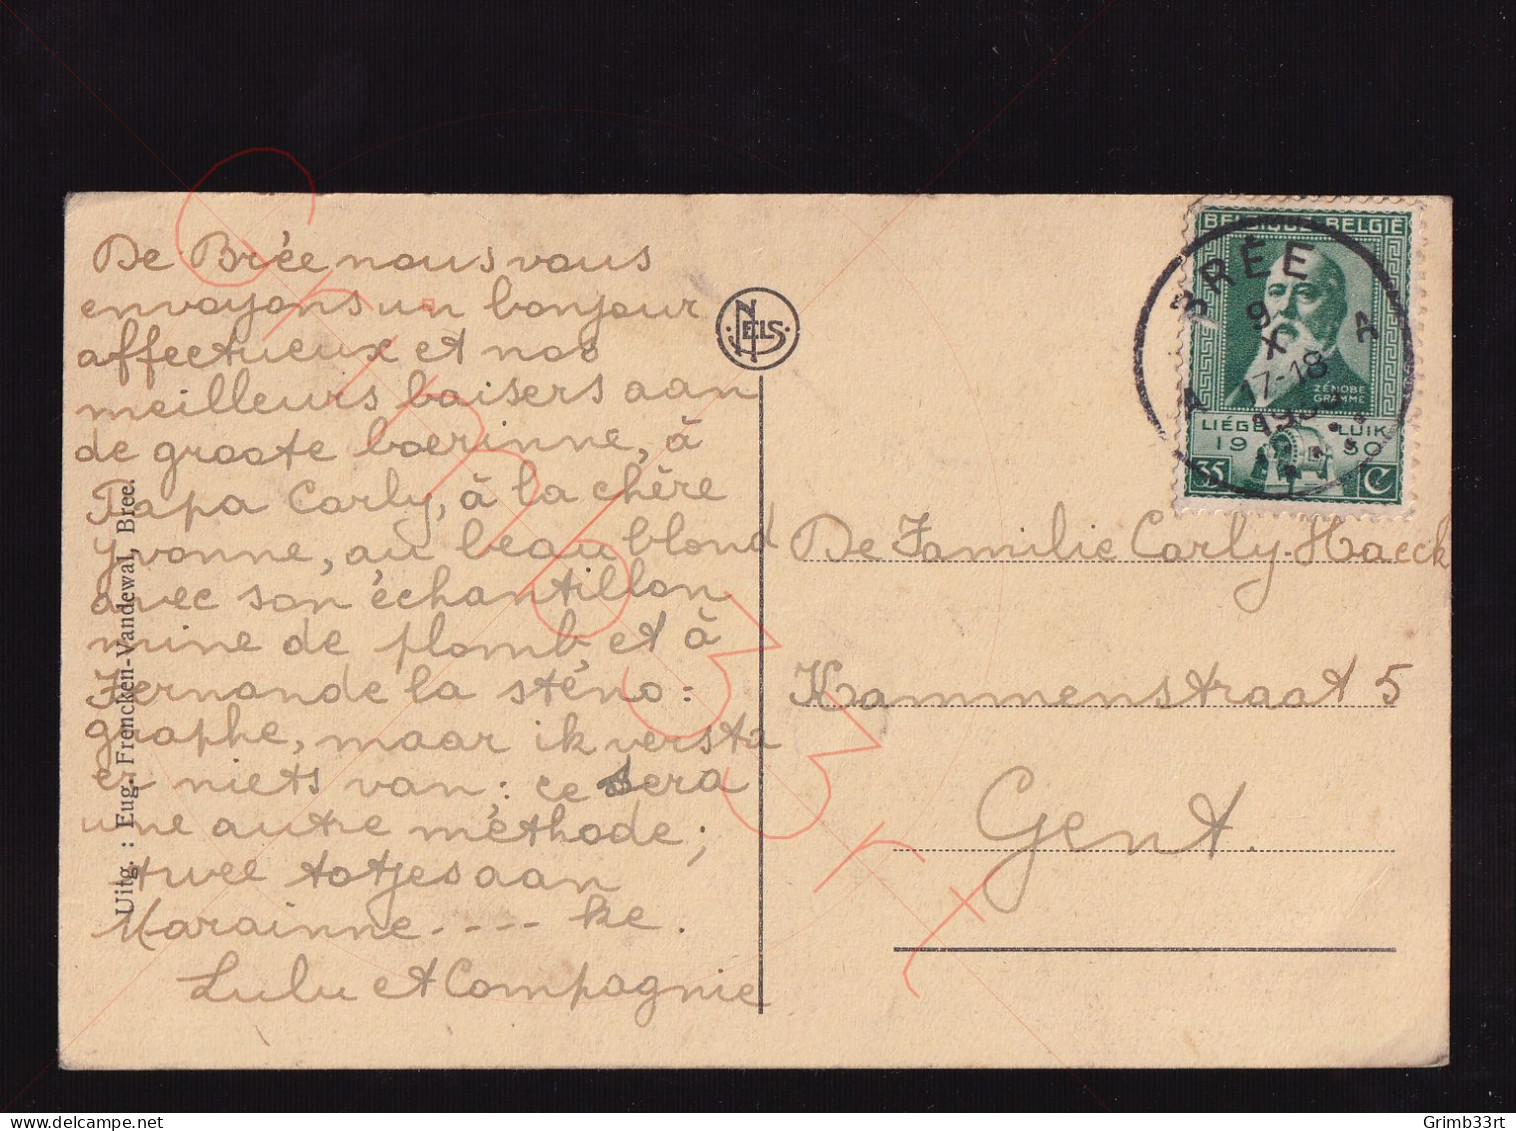 De Brée nous vous
envoyons un bonjour
affectueux et nos
meilleurs baisers aan
de groote boerinne, à
Papa Carly, à la chère
Yvonne, au beau blond
avec son échantillon
mine de plomb, et à
Fernande la sténo=
graphe, maar ik versta
er niets van; ce sera
une autre méthode;
twee totjes aan
Marainne - - - - ke.
Lulu et Compagnie
Uitg. : Eug. Frencken-Vandewal, Bree.
NELS
BELGIQUE-BELGIË
ZÉNOBE
GRAMME
LIÉGE LUIK
19 30
35 C
BRÉE
9
X
17-18
A A
De Familie Carly-Haeck
Kammenstraat 5
Gent.
Grimb33rt
Grimb33rt